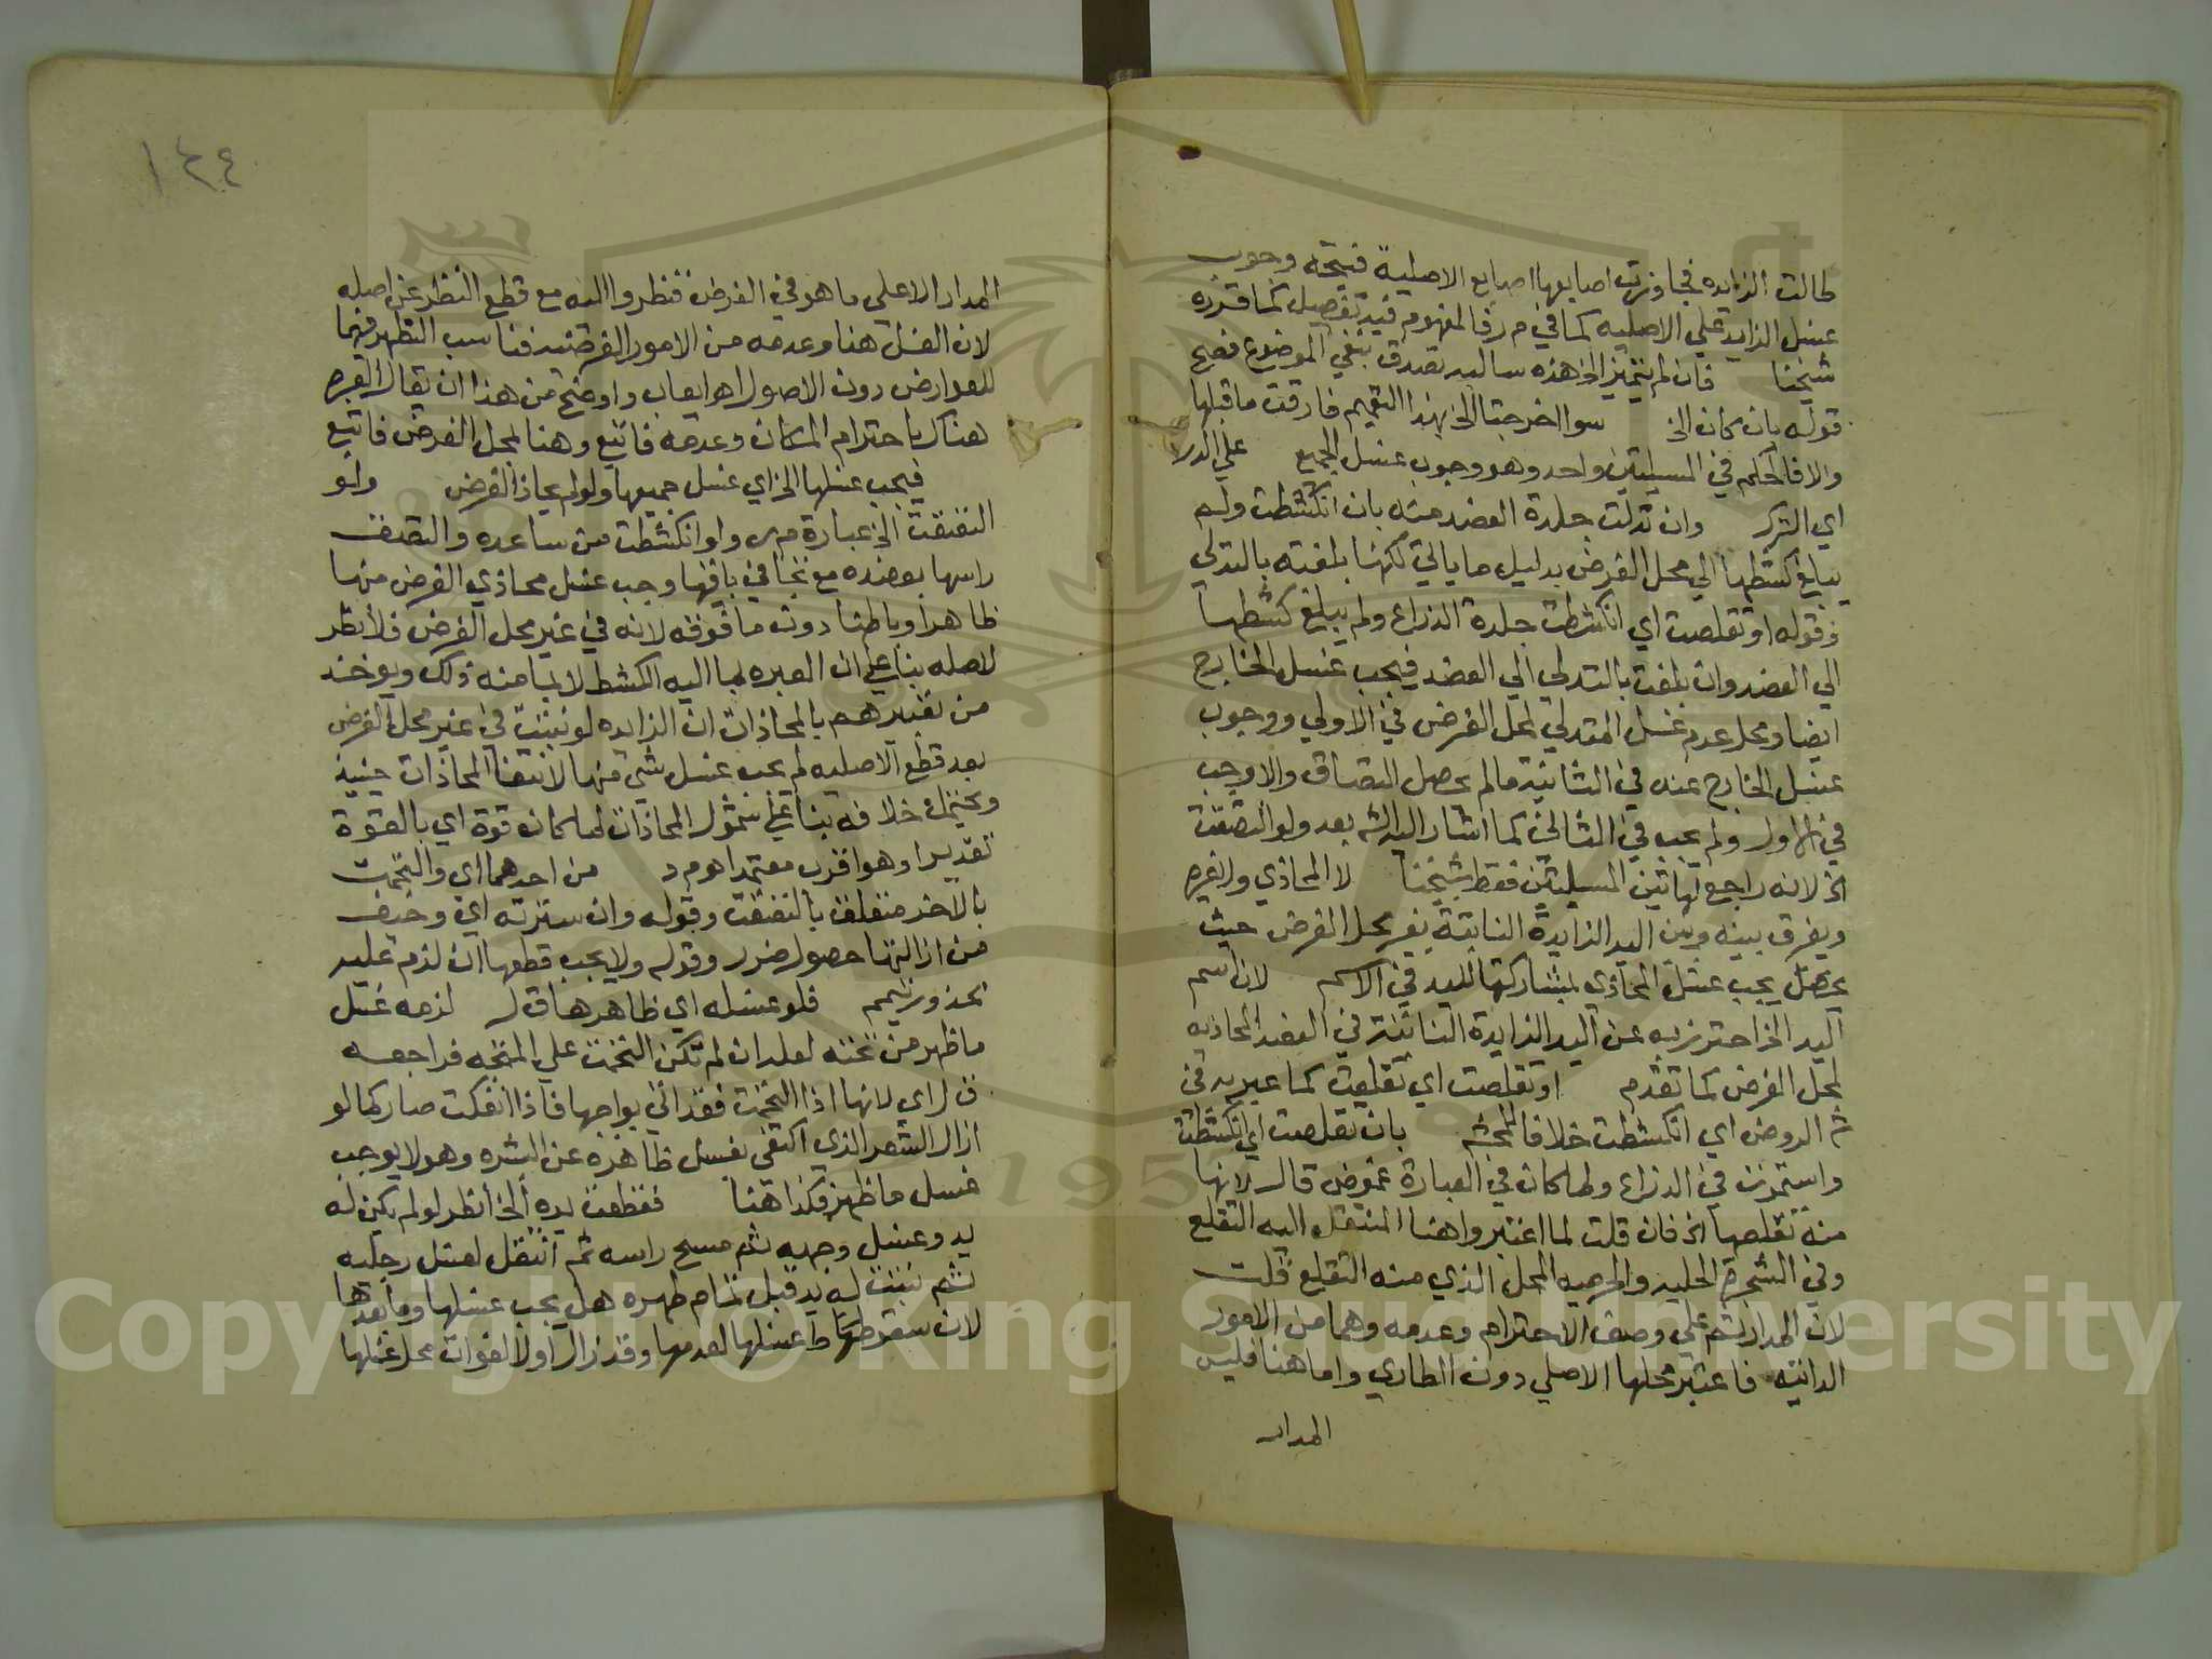 طالت الزايده فجاوزت اصابعها اصابع الاصلية فيتجه وجوب
غسل الزايد علي الاصليه كما في م ر فالمفهوم فيه تفصيل كما قرره
شيخنا فان لم تتميز الخ هذه سالبه تصدق بنفي الموضوع فصح
قوله بان كان الخ سوا اخرجتا الخ بهذا التعميم فارقت ما قبلها
والا فالحكم في المسيلتين واحد وهو وجوب غسل الجميع علي
اي وان تدلت جلدة العضد منه بان انكشطت ولم
يبلغ كشطها الي محل الفرض بدليل ما ياتي لكنها بلغته بالتدلي
وقوله او تقلصت اي انكشطت جلدة الذراع ولم يبلغ كشطها
الي العضد وان بلغت بالتدلي الي العضد فيجب غسل الخارج
ايضا ومحل عدم غسل المتدلي لمحل الفرض في الاولي ووجوب
غسل الخارج عنه في الثانية مالم يحصل التصاق والا وجب
في الاول ولم يجب في الثاني كما اشار اليه الش بعد ولو التصقت
الخ لانه راجع لهاتين المسيلتين فقط شيخنا لا المحاذي ولا غيره
ويفرق بينه وبين اليد الزايدة النابتة بغير محل الفرض حيث
يجب غسل المحاذي بمشاركتها لليد في الاسم لان اسم
اليد الخ احترز به عن اليد الزايدة النابتة في العضد المحاذيه
لمحل الفرض كما تقدم او تقلصت اي تقلعت كما عبر به في
ش الروض اي انكشطت خلافا للمحشي بان تقلصت اي انكشطت
واستمرت في الذراع ولما كان في العبارة غموض قال لانها
منه تقلصها الخ فان قلت لما اعتبروا هنا المنتقل اليه التقلع
وفي الشجرة الحليه والحرميه المحل الذي منه التقلع قلت
لان المدار ثم علي وصف الاحترام وعدمه وهما من الامور
الذاتيه فاعتبر محلها الاصلي دون الطاري واما هنا فليس
المدار
١٢٤
المدار الا علي ما هو في الفرض فنظروا اليه مع قطع النظر عن اصله
لان الغسل هنا وعدمه من الامور العرضيه فناسب النظر فيها
للعوارض دون الاصول اهـ ايعاب واوضح من هذا ان يقال العبره
هناك باحترام المكان وعدمه فاتبع وهنا لمحل الفرض فاتبع
فيجب غسلها الخ اي غسل جميعها ولو لم يحاذ الفرض ولو
التفتت الخ عبارة م ر ولو انكشطت من ساعده والتصقت
راسها بعضده مع تجافي باقيها وجب غسل محاذي الفرض منها
ظاهرا وباطنا دون ما فوقه لانه في غير محل الفرض فلا نظر
لاصله بنا علي ان العبره بما اليه الكشط لا بما منه ذلك ويوخذ
من تعبيرهم بالمحاذات ان الزايده لو نبتت في غير محل الفرض
بعد قطع الاصليه لم يجب غسل شي منها لانتفا المحاذات حينيذ
ويحتمل خلافه بنا علي شمول المحاذات لما كان قوة اي بالقوة
تقديرا وهو اقرب معتمد اهـ م د من احدهما اي والتحمت
بالاخر متعلق بالتصقت وقوله وان سترته اي وخيف
من ازالتها حصول ضرر وقوله ولا يجب قطعها ان لزم عليه
محذور تيمم فلو غسله اي ظاهرها ق ل لزمه غسل
ما ظهر من تحته لعله ان لم تكن التحمت علي المتجه فراجعه
ق ل اي لانها اذا التحمت فقد اتي بواجبها فاذا انفكت صار كما لو
ازال الشعر الذي اكتفي بغسل ظاهره عن البشره وهو لا يوجب
غسل ما ظهر فكذا هنا فقطعت يده الخ انظر لو لم يكن له
يد وغسل وجهه ثم مسح راسه ثم انتقل لغسل رجليه
ثم نبتت له يد قبل تمام طهره هل يجب غسلها وما بعدها
لان سقوط غسلها لعدمها وقد زال اولا لفوات محل غسلها
Copyright © King Saud University
1957